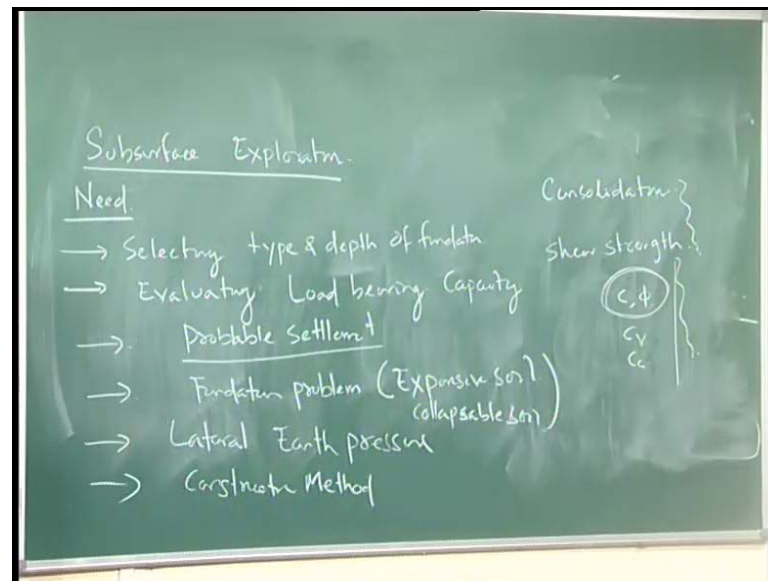 Subsurface Exploratn.
Need
→ Selecting type & depth of fundatn
→ Evaluatng Load bearing Capacity
→ Probbable Settlemt
→ Fundatun problem (Expansive soil
collapsable soil)
→ Lateral Earth pressure
→ Constructn Method
Consolidatn
shear strength
c, ϕ
Cv
Cc